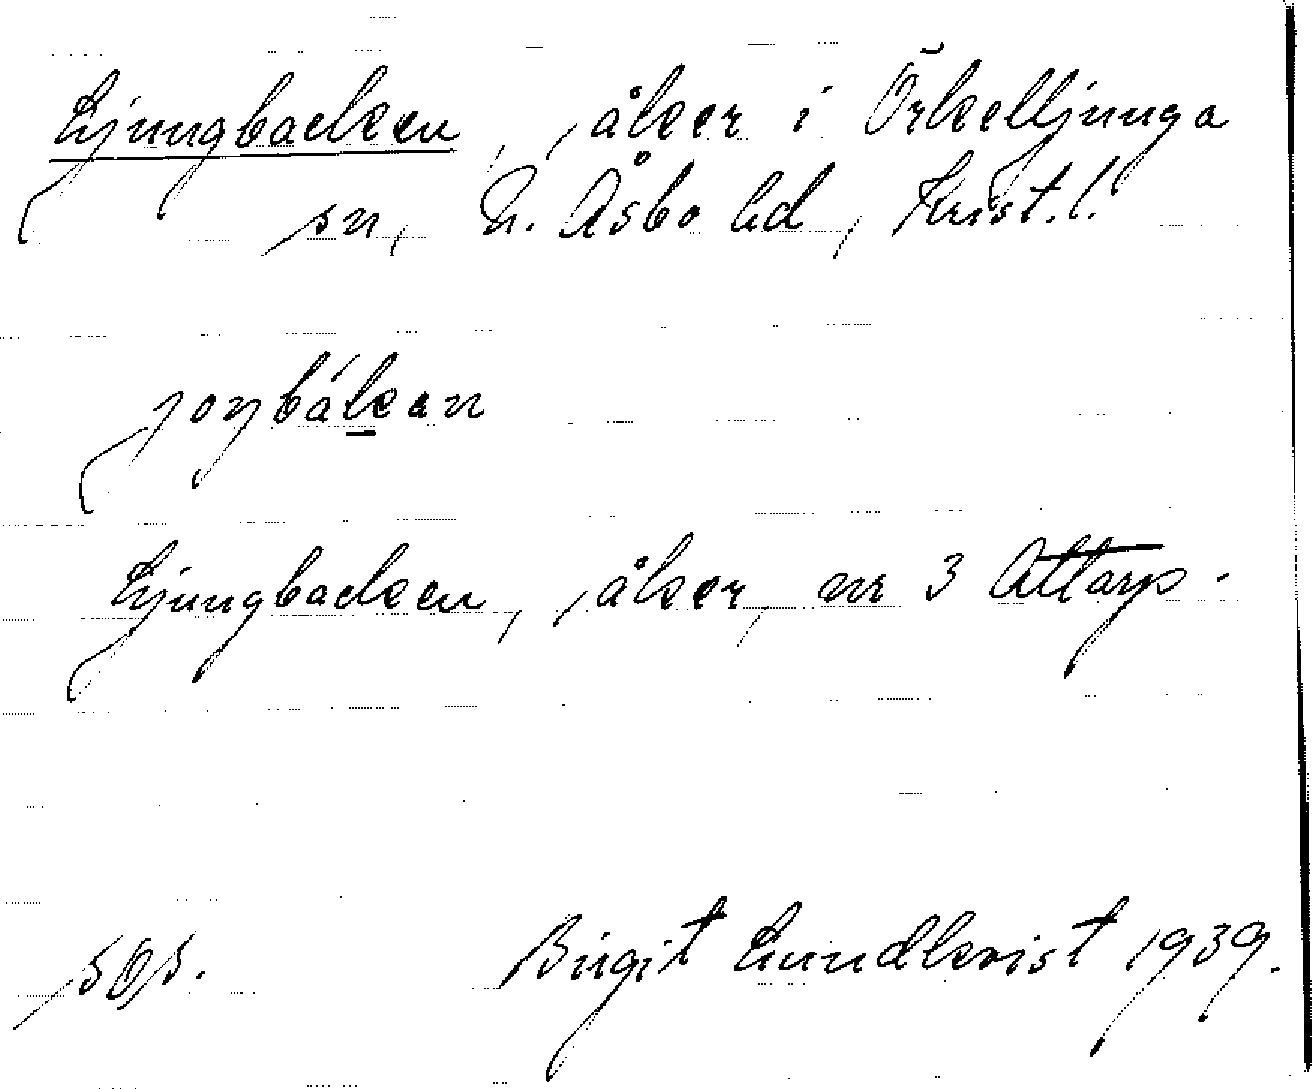 Ljungbacken, åker i Örkelljunga
sn, N. Åsbo hd, Krist. l.
joŋbákan
Ljungbacken, åker, nr 3 Attarp.
Birgit Lundkvist 1939.